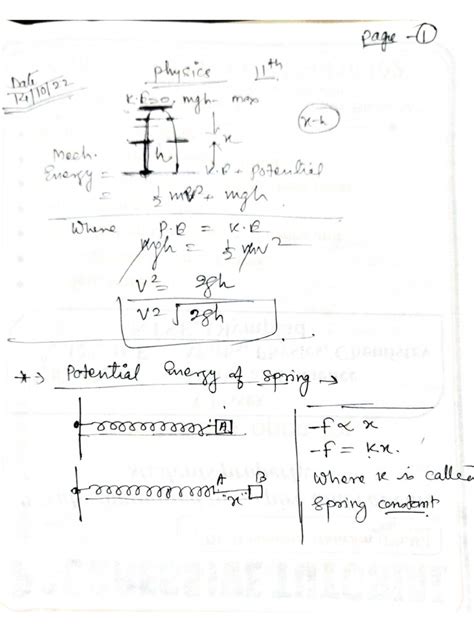 page - ①
Date
21/10/22
physics 11th
K.E=0, mgh - max
x-h
x
h
Mech.
Energy = K.E + potential
= ½ mv² + mgh
Where P.E = K.E
mgh = ½ mv²
V² = 2gh
V = √2gh
*→ Potential Energy of Spring →
A
-f ∝ x
-f = Kx.
A B
"x"
Where K is called
Spring constant.